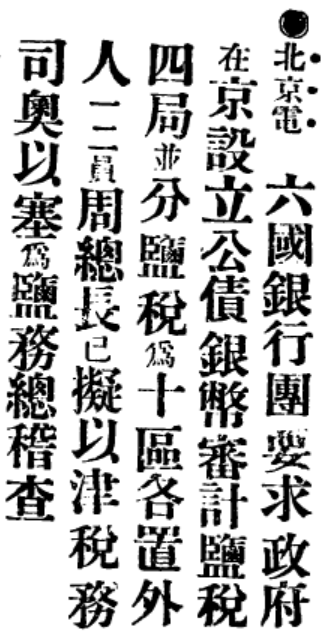 ●北京電　六國銀行團要求政府
在京設立公債銀幣審計鹽稅
四局並分鹽稅爲十區各置外
人一二員周總長已擬以津稅務
司奥以塞爲鹽務總稽查